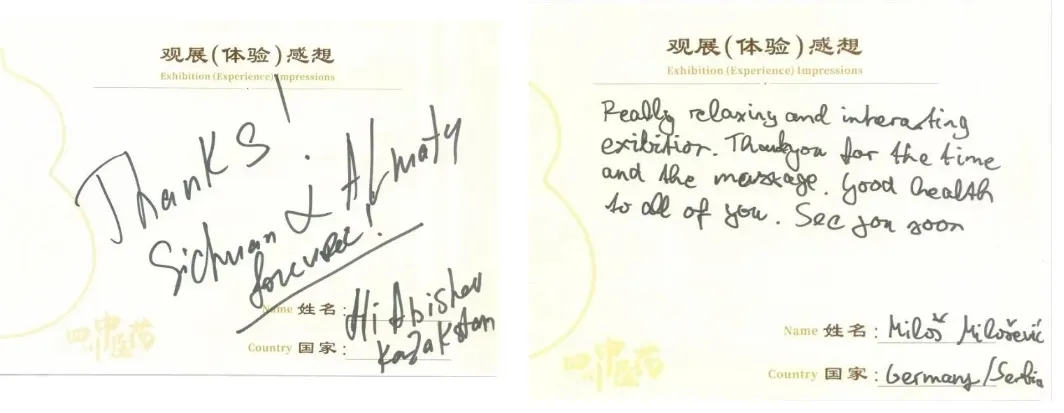 观展(体验)感想
Exhibition (Experience) Impressions
Thanks!
Sichuan & Almaty
forever!
Name 姓名:
Abishev
Country 国家:
Kazakstan
观展(体验)感想
Exhibition (Experience) Impressions
Really relaxing and interasting
exibition. Thankyou for the time
and the massage. Good health
to all of you. See you soon
Name 姓名: Miloš Milošević
Country 国家: Germany/Serbia
四川中医药